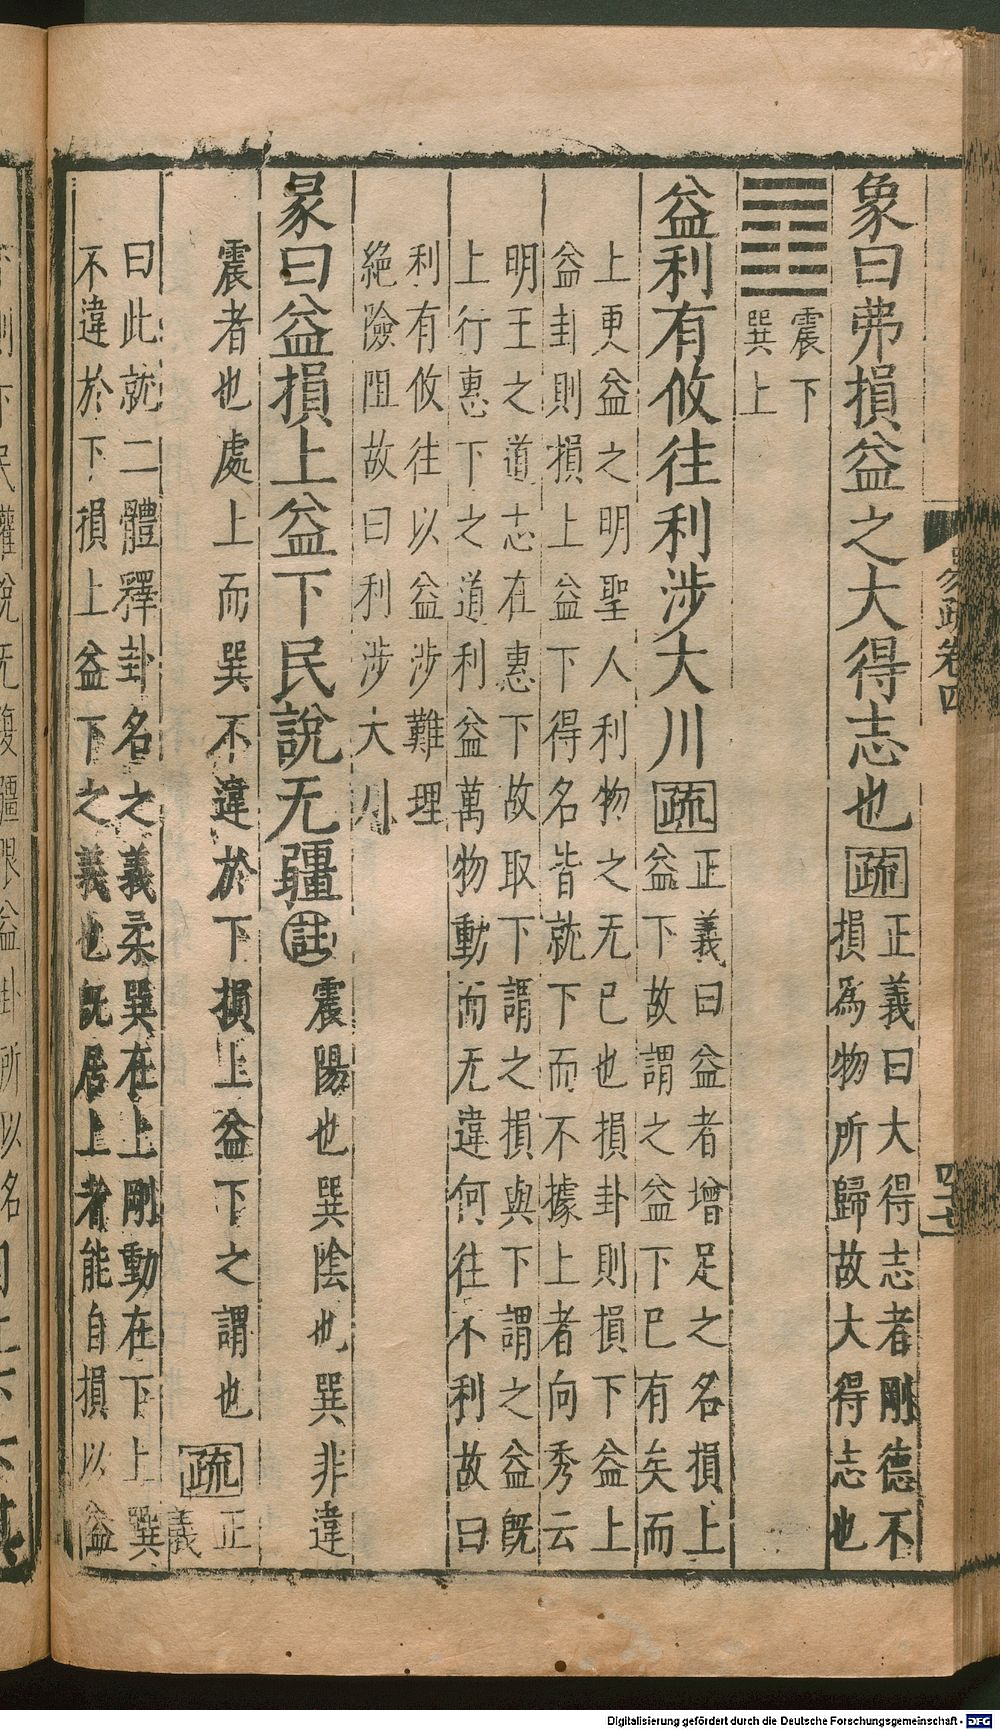 象曰弗損益之大得志也疏
正義曰大得志者剛德不
損為物所歸故大得志也
震下
巽上
益利有攸往利涉大川疏
正義曰益者增足之名損上
益下故謂之益下已有矣而
上更益之明聖人利物之无已也損卦則損下益上
益卦則損上益下得名皆就下而不據上者向秀云
明王之道志在惠下故取下謂之損與下謂之益既
上行惠下之道利益萬物動而无違何往不利故曰
利有攸往以益涉難理
絕險阻故曰利涉大川
彖曰益損上益下民說无疆註
震陽也巽陰也巽非違
震者也處上而巽不違於下損上益下之謂也疏
正
義
曰此就二體釋卦名之義柔巽在上剛動在下上巽
不違於下損上益下之義也既居上者能自損以益
易疏卷四
Digitalisierung gefördert durch die Deutsche Forschungsgemeinschaft - DFG